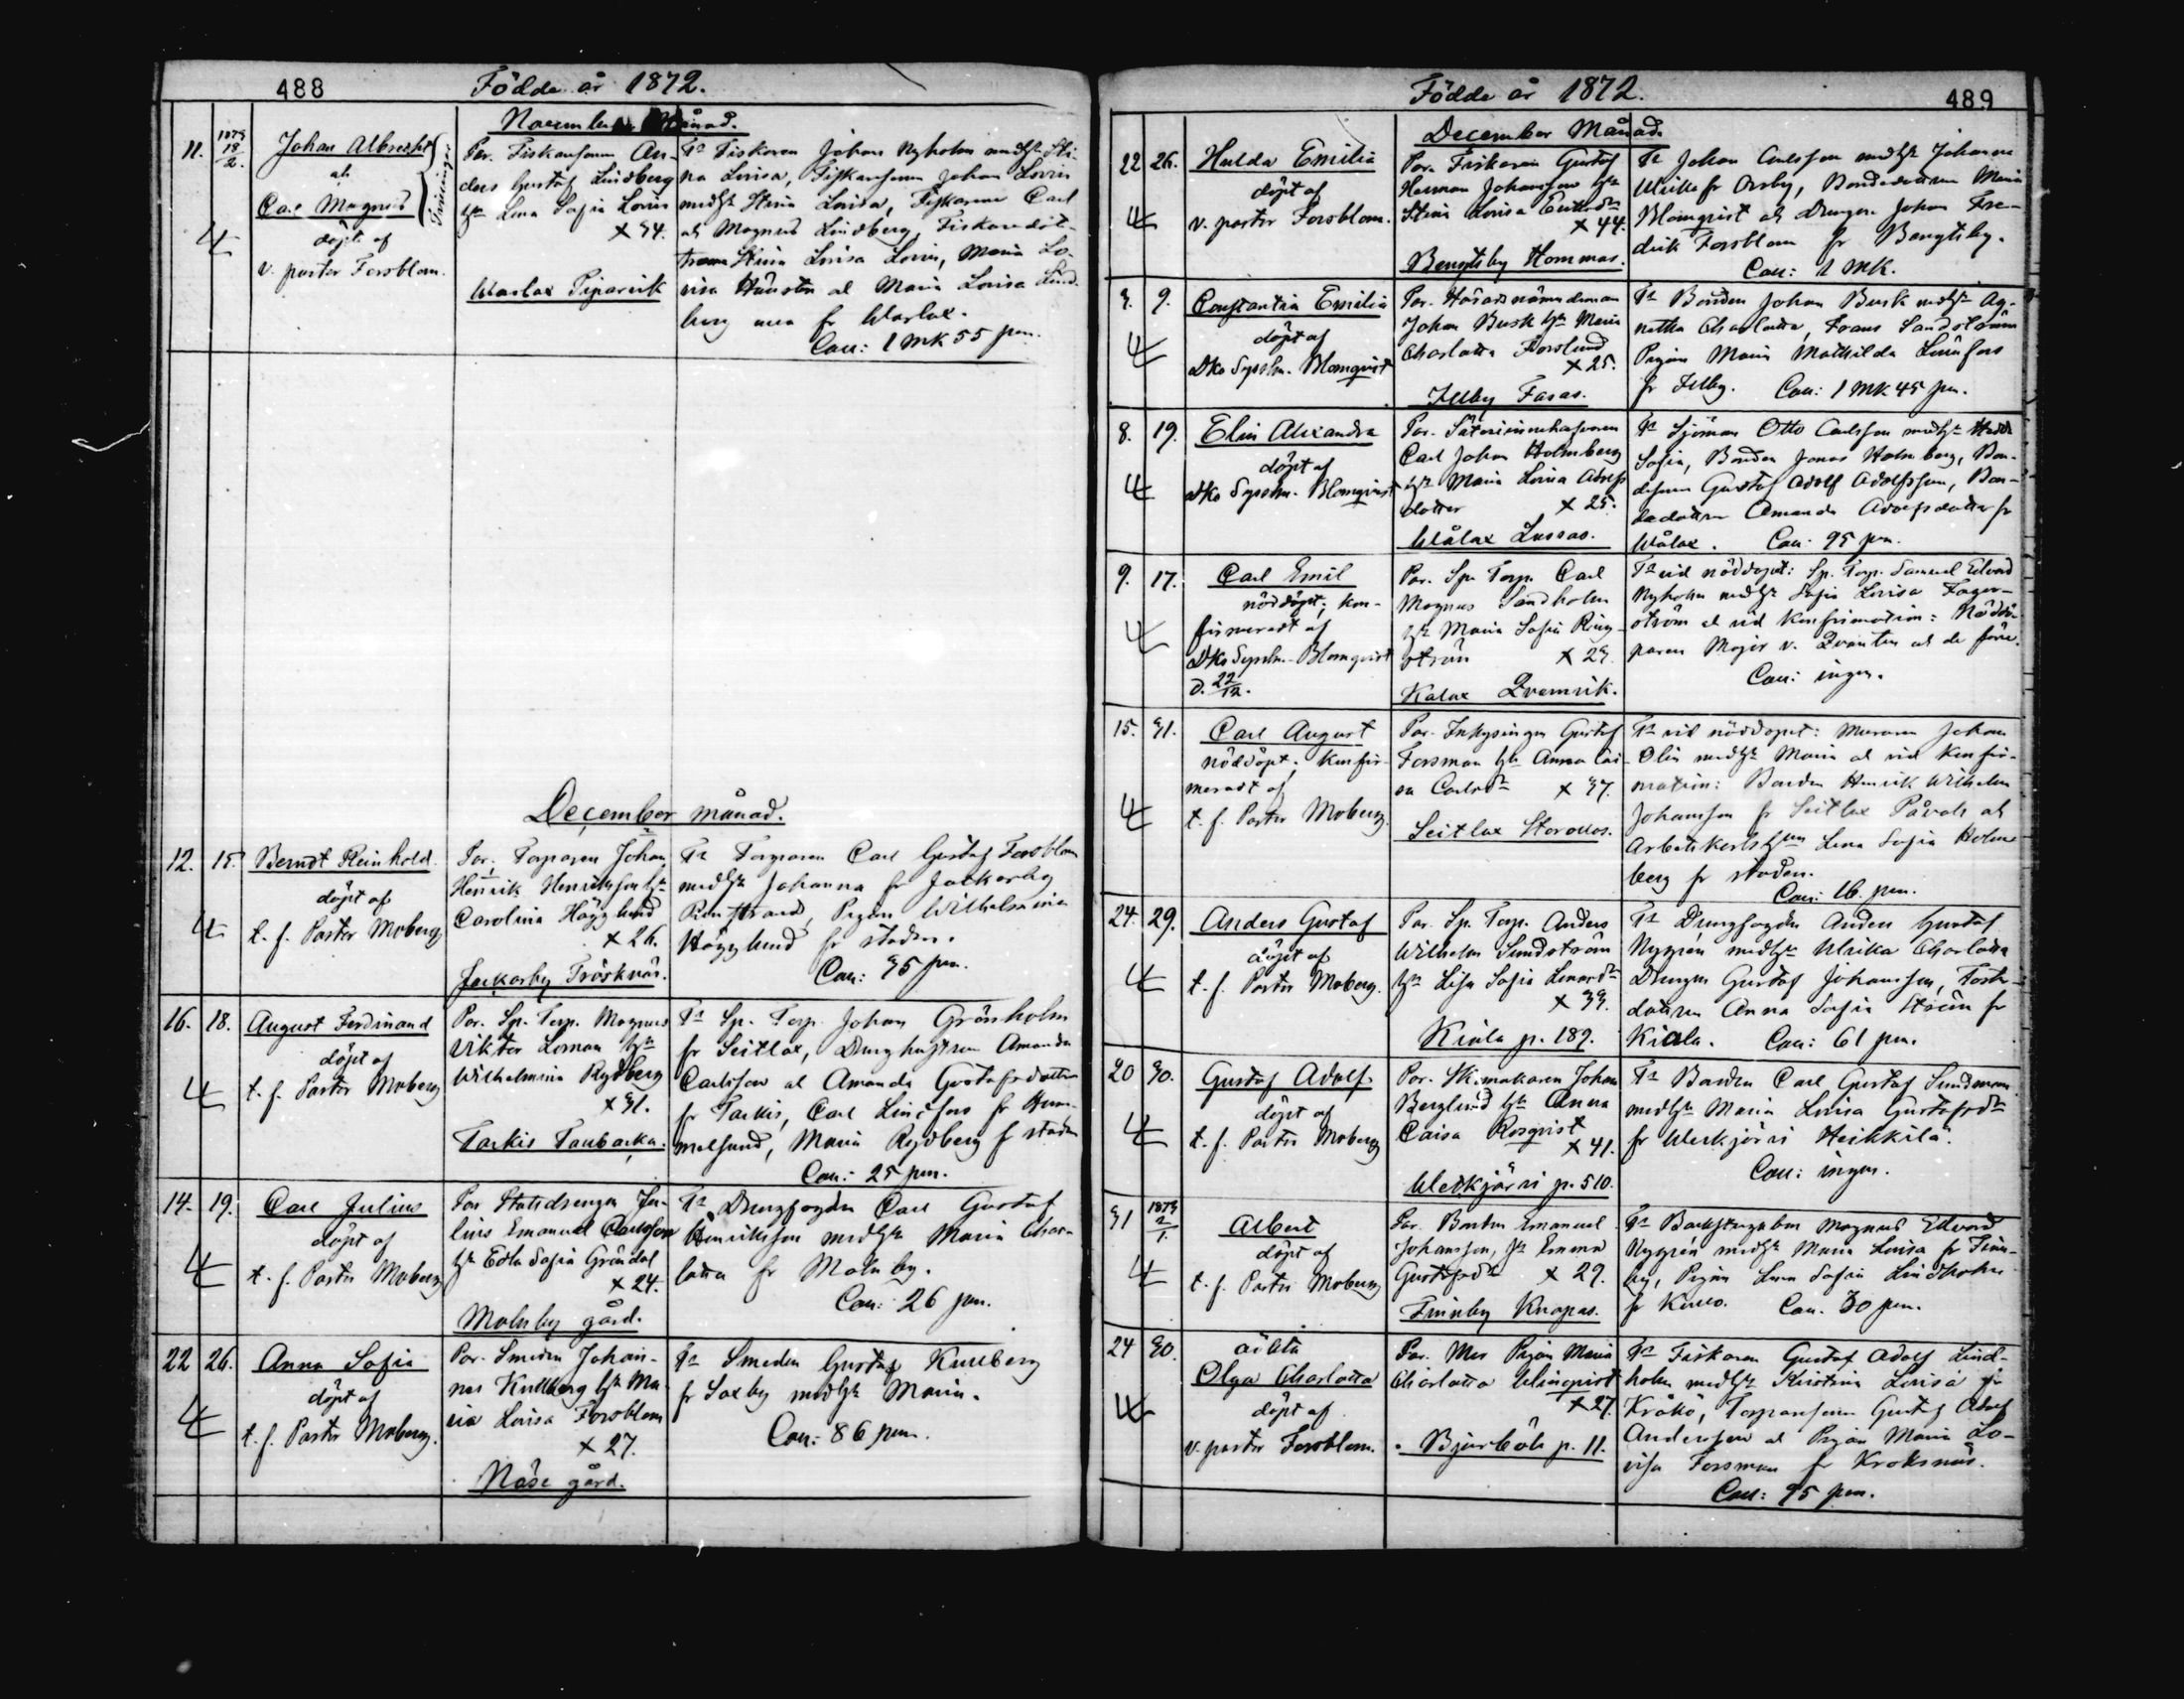 488
Födde år 1872.
November Månad.
11.
1873
18/2.
Johan Albrecht
ah
Carl Magnus
Tvillingar
döpt af
v. pastor Forsblom.
Par. Fiskaresonen An-
ders Gustaf Lindberg
h:u Lena Sofia Lovis
× 34.
Warlax Piparvik
T:s Fiskaren Johan Nyholm
na Lovisa, Fiskaresonen Johan
Stina Lovisa, Fiskarene Carl
ah Magnus Lindberg, Fiskaredöt-
Stina Lovisa Maria Lo-
visa al Maria Lovisa Lind-
berg fr Warlax.
Coll: 1 mk 55 pen.
December månad.
12.
15.
Berndt Reinhold
döpt af
t. f. Pastor Moberg
Par. Torparen Johan
Henrik Henriksson h:u
Carolina Hägglund
× 26.
Jackarby Träsknäs.
T:s Torparen Carl Gustaf Forsblom
Johanna fr Jackarby
Pigan Wilhelmina
Hägglund fr staden.
Coll: 35 pen.
16.
18.
August Ferdinand
döpt af
t. f. Pastor Moberg
Par. Sp. Torp. Magnus
Viktor Loman h:u
Wilhelmina Rydberg
× 31.
Tarkis Taubacka.
T:s Sp. Torp. Johan Grönholm
fr Seitlax, Amanda
Carlsson al Amanda Gustafsdotter
fr Tarkis, Carl Linefors fr Hum-
melsund, Maria Rydberg fr staden
Coll: 25 pen.
14.
19.
Carl Julius
döpt af
t. f. Pastor Moberg
Par Statdrengen Ju-
lius Emanuel Carlsson
h:u Edla Sofia Gröndal
× 24.
Molnby gård.
T:s Drengfogden Carl Gustaf
Henriksson Maria Char-
lotta fr Molnby.
Coll: 26 pen.
22
26.
Anna Sofia
döpt af
t. f. Pastor Moberg.
Par. Smeden Johan-
nes Kullberg h:u Ma-
ria Lovisa Forsblom
× 27.
Näse gård.
T:s Smeden Gustaf Kullberg
fr Saxby Maria.
Coll: 86 pen.
Födde år 1872.
489
December Månad.
22
26.
Hulda Emilia
döpt af
v. pastor Forsblom.
Par. Fiskaren Gustaf
Herman Johansson h:u
Stina Lovisa
× 44.
Bengtsby Hommas.
T:s Johan Carlsson Johanna
Ulrika fr Orrby, Bondedottren Maria
Blomqvist ah Drengen Johan Fre-
drik Forsblom fr Bengtsby.
Coll: 1 mk.
3.
9.
Constantia Emilia
döpt af
Dko Syssm. Blomqvist
Par. Häradsnämndeman
Johan Busk h:u Maria
Charlotta Forslund
× 25.
Illby Fasas.
T:s Bonden Johan Busk Ag-
netha Charlotta, Frans Sandström
Pigan Maria Mathilda Linefors
fr Illby. Coll: 1 mk 45 pen.
8.
19.
Elin Alexandra
döpt af
Dko Syssm. Blomqvist
Par. Säteriinnehafvaren
Carl Johan Holmberg
h:u Maria Lovisa Adolfs
dotter × 25.
Wålax Lassas.
T:s Sjöman Otto Carlsson Hedda
Sofia, Bonden Jonas Holmberg, Bon-
desonen Gustaf Adolf Adolfsson, Bon-
dedottren Amanda Adolfsdotter fr
Wålax. Coll: 95 pen.
9.
17.
Carl Emil
nöddöpt; kon-
firmeradt af
Dko Syssm. Blomqvist
d. 22/12.
Par. Sp. Torp. Carl
Magnus Sandholm
h:u Maria Sofia Ring-
ström × 23.
Kalax
T:s vid nöddopet: Sp. Torp. Samuel Edvard
Nyholm Sofia Lovisa Fager-
ström al vid konfirmation: Nöddö-
paren Major v. Qvanten ah de förre.
Coll: ingen.
15.
31.
Carl August
nöddöpt; konfir-
meradt af
t. f. Pastor Moberg.
Par. Inhysingen Gustaf
Forsman h:u Anna Cai-
sa Carlsd:r × 37.
Seitlax Storoas.
T:s vid nöddopet: Muraren Johan
Olin Maria al vid konfir-
mation: Bonden Henrik Wilhelm
Johansson fr Seitlax Påvals ah
Arbetskarls Lena Sofia Holm-
berg fr staden.
Coll: 16 pen.
24.
29.
Anders Gustaf
döpt af
t. f. Pastor Moberg.
Par. Sp. Torp. Anders
Wilhelm Sundström
h:u Lisa Sofia
× 33.
Kiala p. 189.
T:s Drengfogden Anders Gustaf
Nygrén Ulrika Charlotta
Drengen Gustaf Johansson,
dottren Anna Sofia Ström fr
Kiala. Coll: 61 pen.
20
30.
Gustaf Adolf
döpt af
t. f. Pastor Moberg
Par. Skomakaren Johan
Berglund h:u Anna
Caisa Rosqvist
× 41.
Weckjärvi p. 510.
T:s Bonden Carl Gustaf Sundman
Maria Lovisa Gustafsd:r
fr Weckjärvi Heikkilä.
Coll: ingen.
31
1873
2/1.
Albert
döpt af
t. f. Pastor Moberg
Par. Bonden Emanuel
Johansson, h:u Emma
Gustafsd:r × 29.
Finnby Knapas.
T:s Backstugubon Magnus Edvard
Nygrén Maria Lovisa fr Finn-
by, Pigan Lena Sofia Lindholm
fr Kullo. Coll. 30 pen.
24
30.
oäkta
Olga Charlotta
döpt af
v. pastor Forsblom.
Par. Mor Pigan Maria
Charlotta Winqvist
× 27.
Bjurböle p. 11.
T:s Fiskaren Gustaf Adolf Lind-
holm Kristina Lovisa fr
Kråkö, Torparesonen Gustaf Adolf
Andersson al Pigan Maria Lo-
visa Forsman fr Kroksnäs.
Coll: 95 pen.